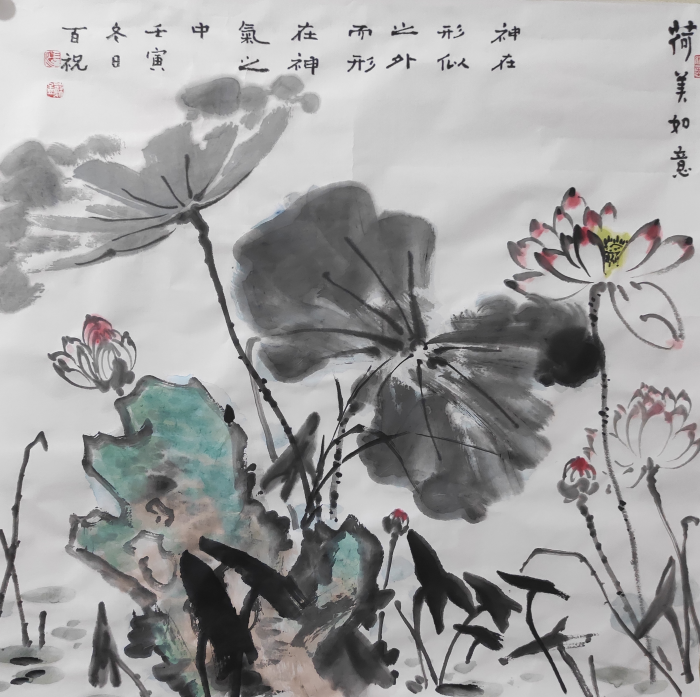 荷美如意
神在
形似
之外
而形
在神
氣之
中
壬寅
冬日
百祝